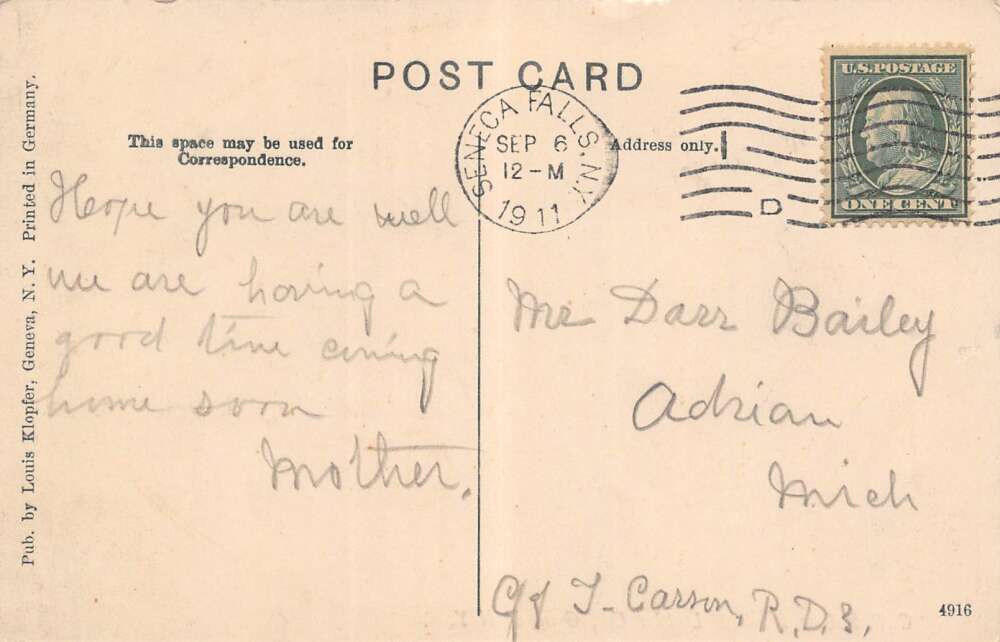 POST CARD
This space may be used for
Correspondence.
Address only.
SENECA FALLS, N.Y.
SEP 6
12-M
1911
D
U.S. POSTAGE
ONE CENT
Hope you are well
we are having a
good time coming
home soon
Mother.
Mr Darr Bailey
Adrian
Mich
T- Carson, R.D.3,
4916
Pub. by Louis Klopfer, Geneva, N. Y. Printed in Germany.